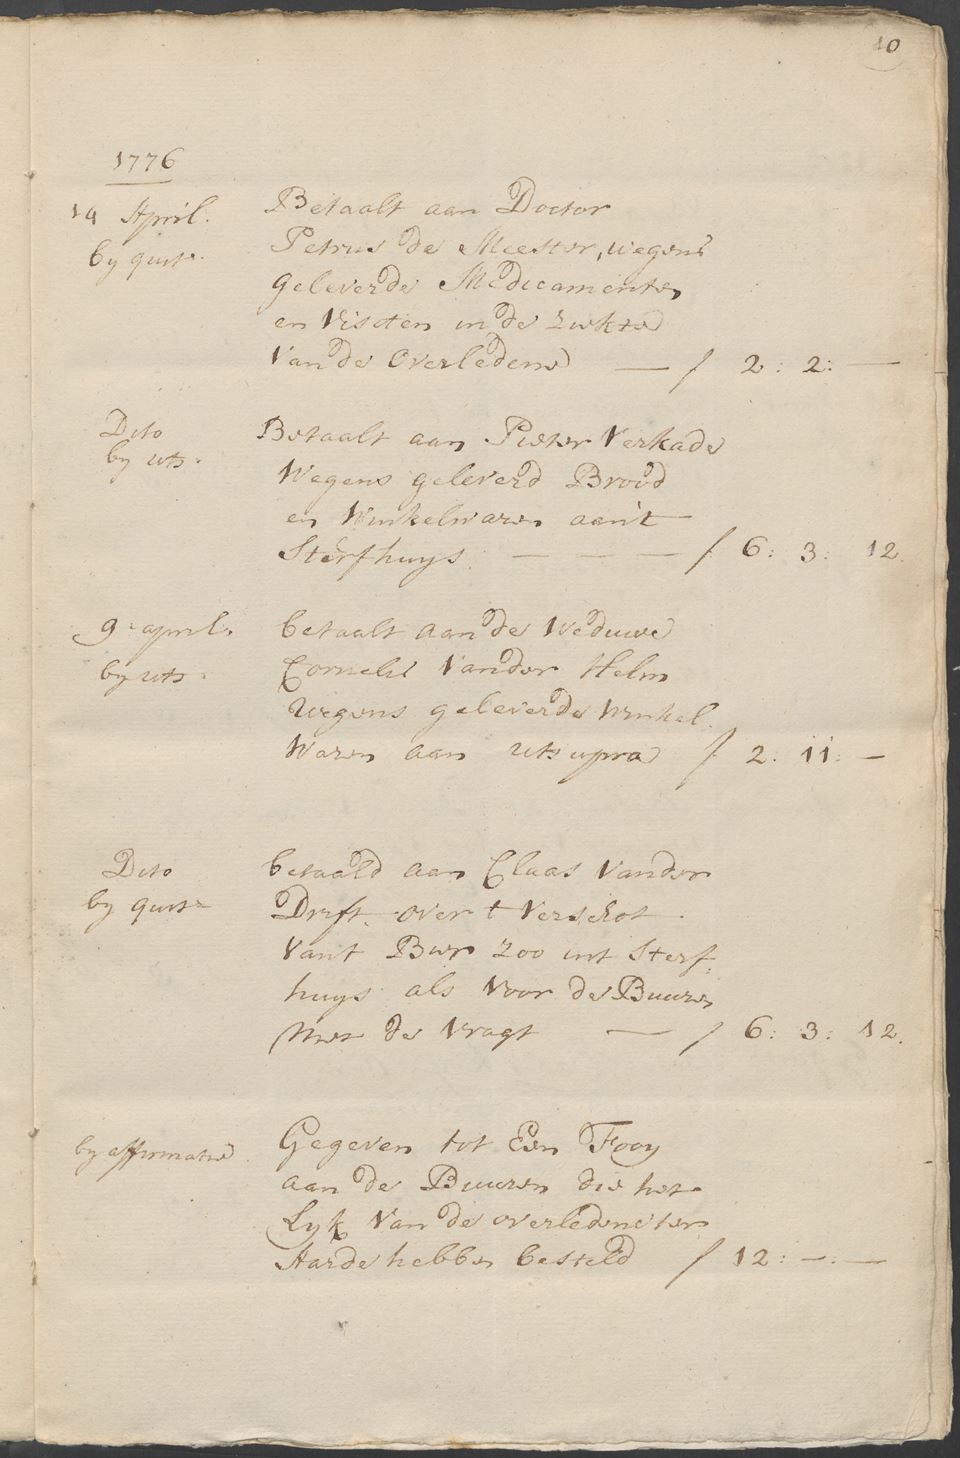 10
1776
14 April.
by quit.
Betaalt aan Doctor
Petrus de Meester, wegens
geleverde Medicamenten
en Visiten in de Ziekte
Van de Overledene — ƒ 2: 2: —
Dito
by uts.
Betaalt aan Pieter Verkade
Wegens geleverd Brood
en Winkelwaren aan't
Sterfhuys. — — — ƒ 6: 3: 12.
9 april.
by uts.
betaalt aan de Weduwe
Cornelis Vander Helm
Wegens geleverde Winkel
Waren aan uts upra ƒ 2: 11: —
Dito
by quit
betaald aan Claas Vander
Drift over t Verschot
Vant Bier zoo int Sterf
huys als Voor de Buuren
Met de Vragt — ƒ 6: 3: 12.
by affirmatie
Gegeven tot Een Fooy
aan de Buuren die het
Lyk Van de overledene ter
Aarde hebben besteld ƒ 12: —: —